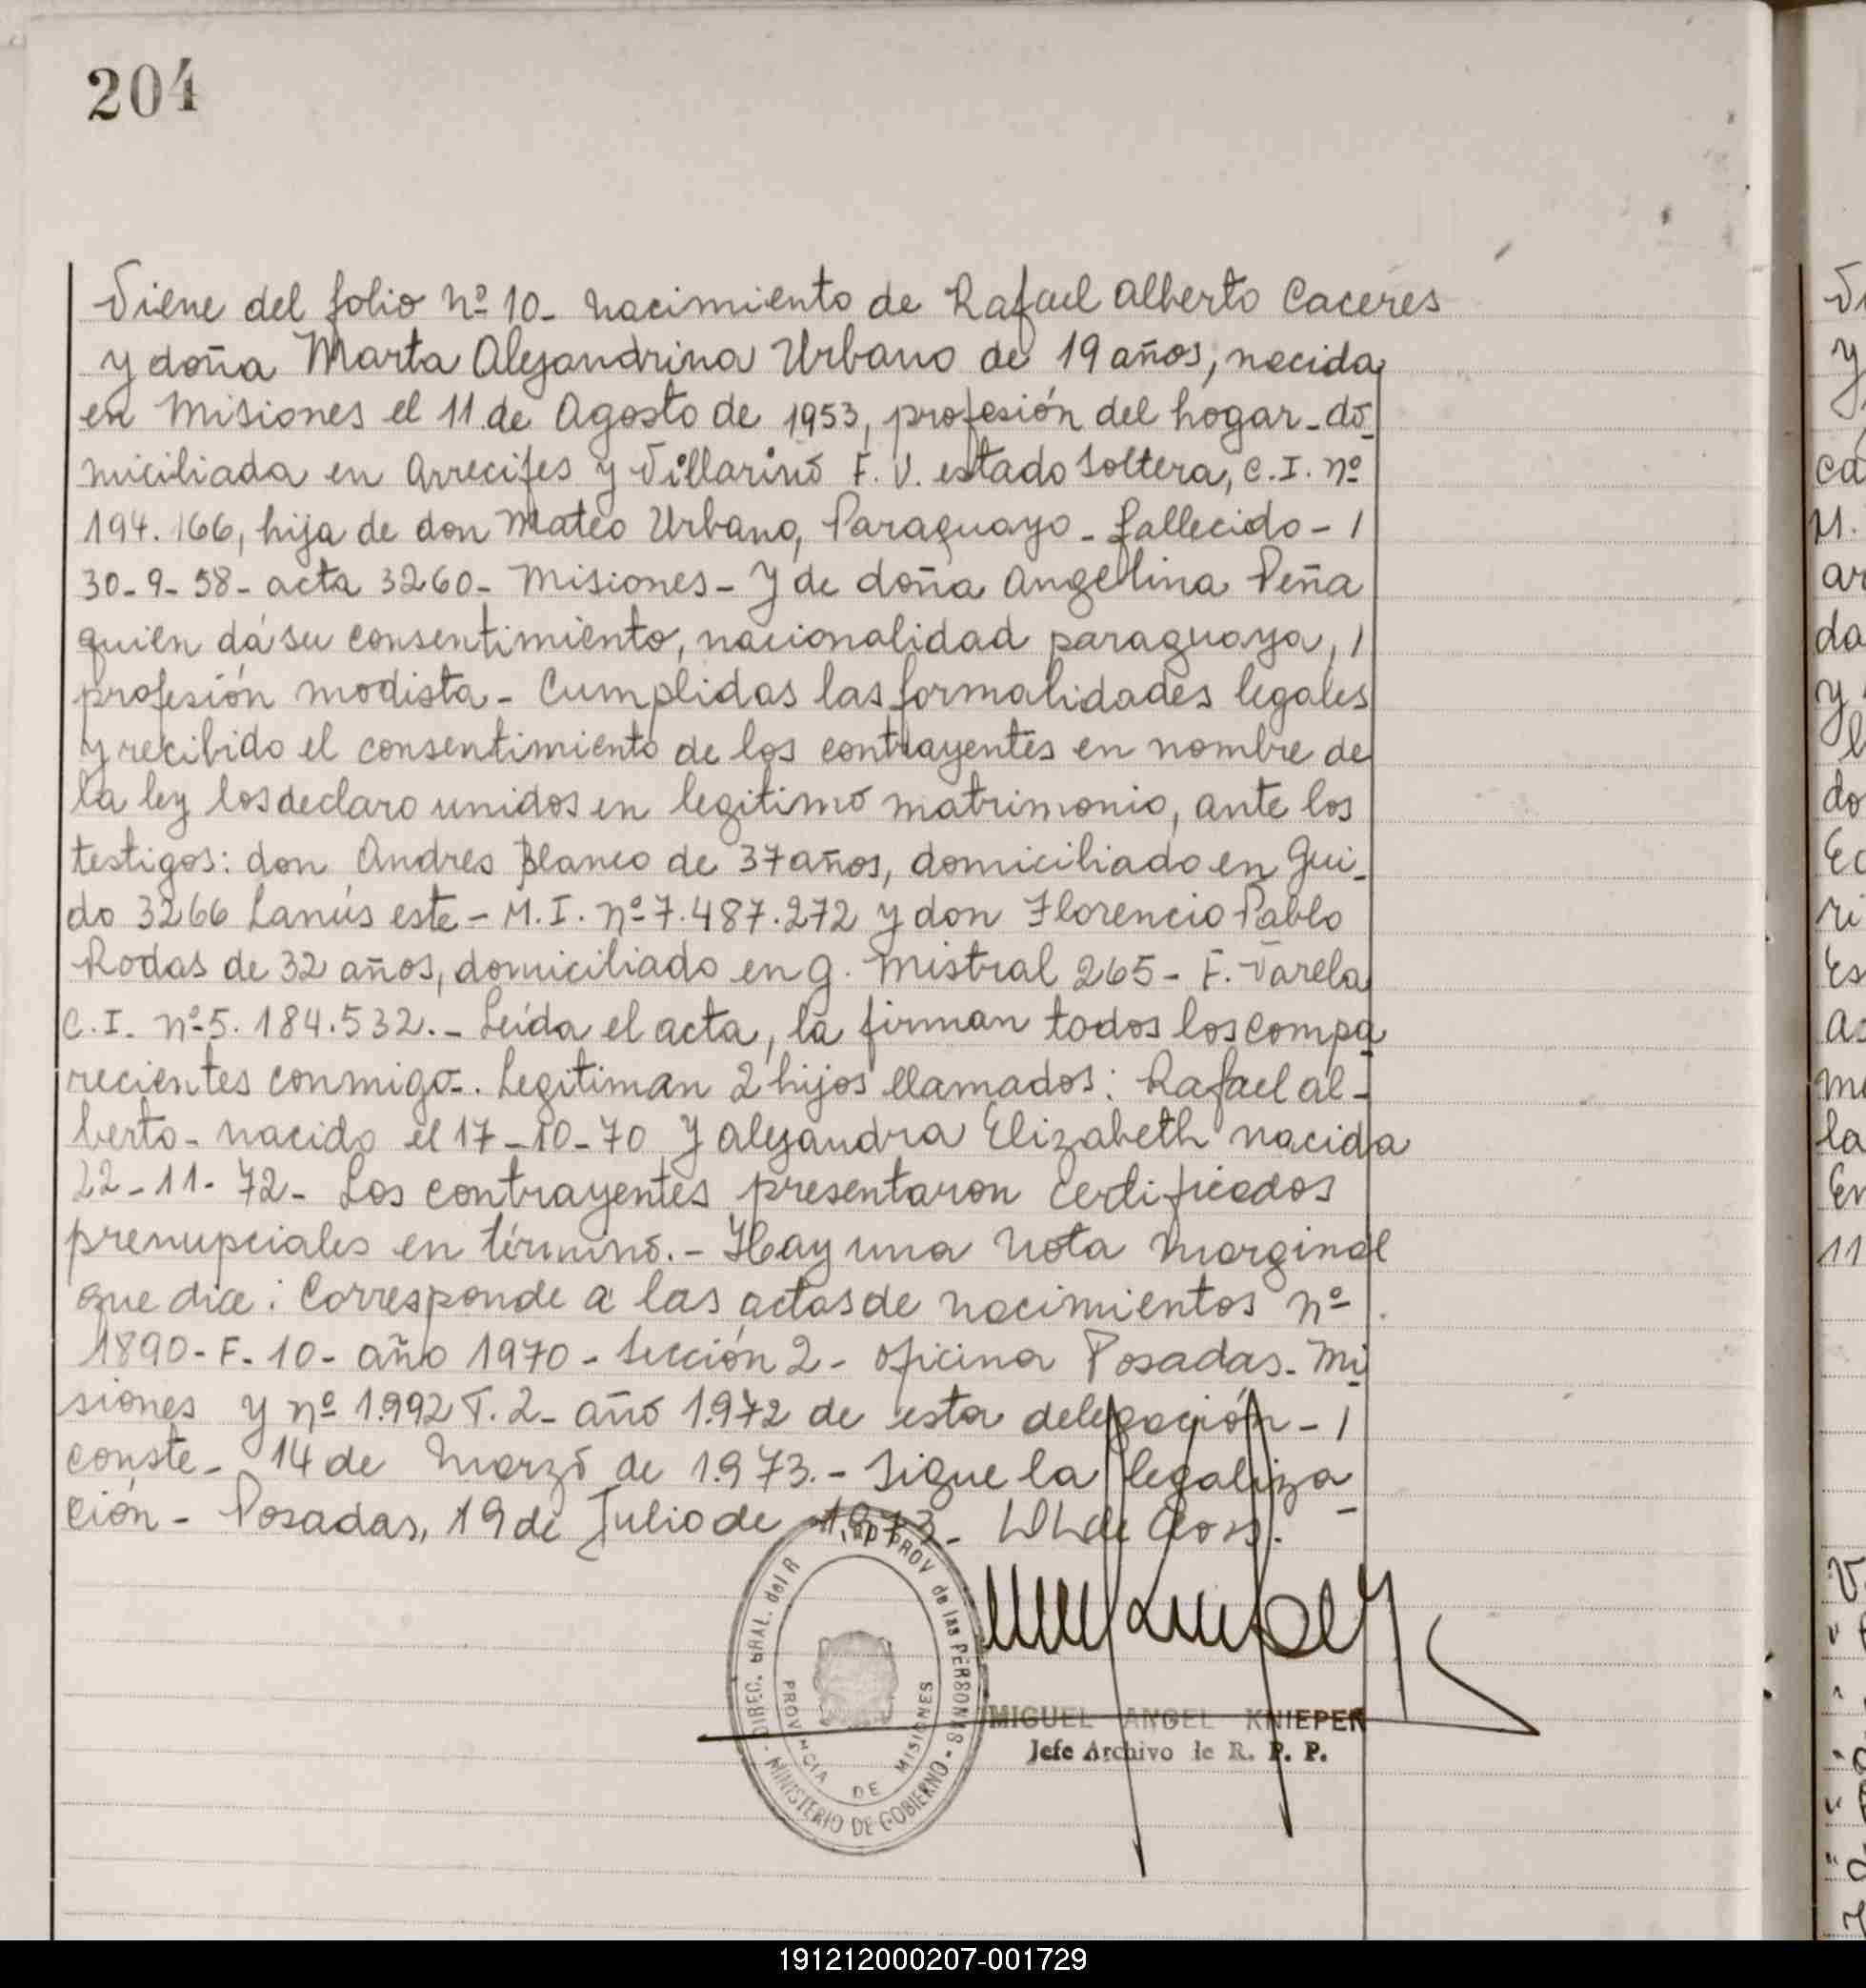 204
Viene del folio nº 10_ nacimiento de Rafael Alberto Caceres
y doña Marta Alejandrina Urbano de 19 años, nacida
en Misiones el 11 de Agosto de 1953, profesión del hogar_do_
miciliada en Arrecifes y Villarino F. V. estado soltera, C.I. nº
194.166, hija de don Mateo Urbano, Paraguayo - fallecido - /
30-9-58 - acta 3260 - Misiones - y de doña Angelina Peña
quien dá su consentimiento, nacionalidad paraguaya, /
profesión modista - Cumplidas las formalidades legales
y recibido el consentimiento de los contrayentes en nombre de
la ley los declaro unidos en legitimo matrimonio, ante los
testigos: don Andres Blanco de 37 años, domiciliado en Gui_
do 3266 Lanús este - M.I. nº 7.487.272 y don Florencio Pablo
Rodas de 32 años, domiciliado en G. Mistral 265 - F. Varela
C.I. nº 5.184.532. - Leída el acta, la firman todos los compa_
recientes conmigo_. Legitiman 2 hijos llamados: Rafael Al_
berto - nacido el 17-10-70 y Alejandra Elizabeth nacida
22-11-72 - Los contrayentes presentaron certificados
prenupciales en término. - Hay una nota marginal
que dice: Corresponde a las actas de nacimientos nº
1890 - F. 10 - año 1970 - sección 2 - oficina Posadas - Mi_
siones y nº 1.992 T. 2 - año 1.972 de esta delegación - /
conste - 14 de Marzo de 1.973. - Sigue la legaliza_
ción - Posadas, 19 de Julio de 1973 -
DIREC. GRAL. del R PROV de las PERSONAS - MINISTERIO DE GOBIERNO -
PROVINCIA DE MISIONES
MIGUEL ANGEL KNIEPER
Jefe Archivo de R. P. P.
191212000207-001729